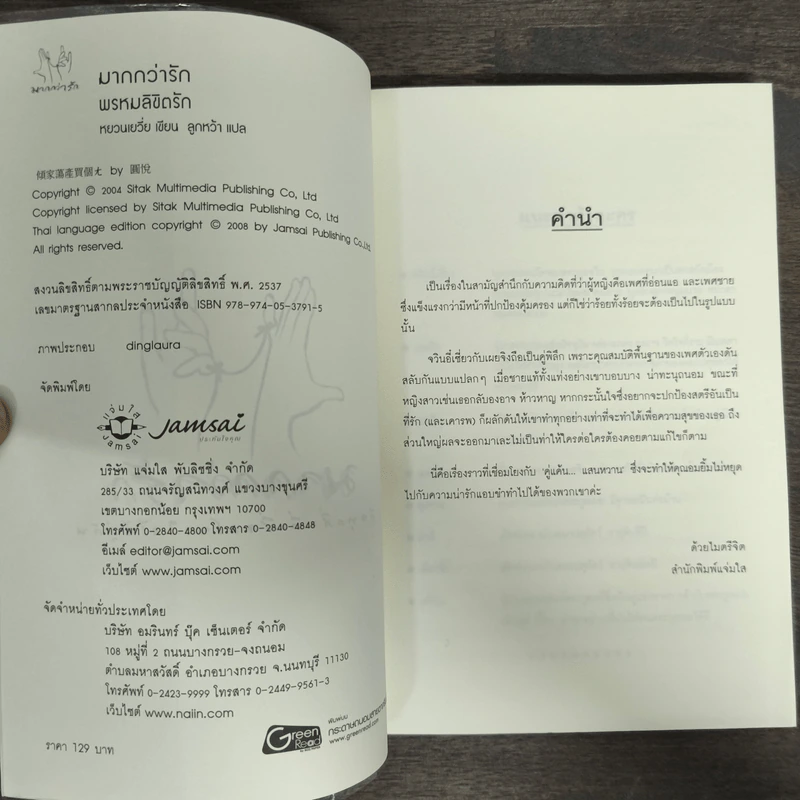 มากกว่ารัก
มากกว่ารัก
พรหมลิขิตรัก
หยวนเยวี่ย เขียน ลูกหว้า แปล
傾家蕩產買個ㄤ by 圓悅
Copyright © 2004 Sitak Multimedia Publishing Co, Ltd
Copyright licensed by Sitak Multimedia Publishing Co, Ltd
Thai language edition copyright © 2008 by Jamsai Publishing Co,Ltd
All rights reserved.
สงวนลิขสิทธิ์ตามพระราชบัญญัติลิขสิทธิ์ พ.ศ. 2537
เลขมาตรฐานสากลประจำหนังสือ ISBN 978-974-05-3791-5
ภาพประกอบ dinglaura
จัดพิมพ์โดย
แจ่มใส
Jamsai
Jamsai
บริษัท แจ่มใส พับลิชชิ่ง จำกัด
285/33 ถนนจรัญสนิทวงศ์ แขวงบางขุนศรี
เขตบางกอกน้อย กรุงเทพฯ 10700
โทรศัพท์ 0-2840-4800 โทรสาร 0-2840-4848
อีเมล์ editor@jamsai.com
เว็บไซต์ www.jamsai.com
จัดจำหน่ายทั่วประเทศโดย
บริษัท อมรินทร์ บุ๊ค เซ็นเตอร์ จำกัด
108 หมู่ที่ 2 ถนนบางกรวย-จงถนอม
ตำบลมหาสวัสดิ์ อำเภอบางกรวย จ.นนทบุรี 11130
โทรศัพท์ 0-2423-9999 โทรสาร 0-2449-9561-3
เว็บไซต์ www.naiin.com
Green
Read
พิมพ์บน
www.greenread.com
ราคา 129 บาท
คำนำ
เป็นเรื่องในสามัญสำนึกกับความคิดที่ว่าผู้หญิงคือเพศที่อ่อนแอ และเพศชาย
ซึ่งแข็งแรงกว่ามีหน้าที่ปกป้องคุ้มครอง แต่ก็ใช่ว่าร้อยทั้งร้อยจะต้องเป็นไปในรูปแบบ
นั้น
จวินอี่เซี่ยวกับเผยจิงถือเป็นคู่พิลึก เพราะคุณสมบัติพื้นฐานของเพศตัวเองดัน
สลับกันแบบแปลกๆ เมื่อชายแท้ทั้งแท่งอย่างเขาบอบบาง น่าทะนุถนอม ขณะที่
หญิงสาวเช่นเธอกลับองอาจ ห้าวหาญ หากกระนั้นใจซึ่งอยากจะปกป้องสตรีอันเป็น
ที่รัก (และเคารพ) ก็ผลักดันให้เขาทำทุกอย่างเท่าที่จะทำได้เพื่อความสุขของเธอ ถึง
ส่วนใหญ่ผลจะออกมาเละไม่เป็นท่าให้ใครต่อใครต้องคอยตามแก้ไขก็ตาม
นี่คือเรื่องราวที่เชื่อมโยงกับ 'คู่แค้น... แสนหวาน' ซึ่งจะทำให้คุณอมยิ้มไม่หยุด
ไปกับความน่ารักแอบขำทำไปได้ของพวกเขาค่ะ
ด้วยไมตรีจิต
สำนักพิมพ์แจ่มใส